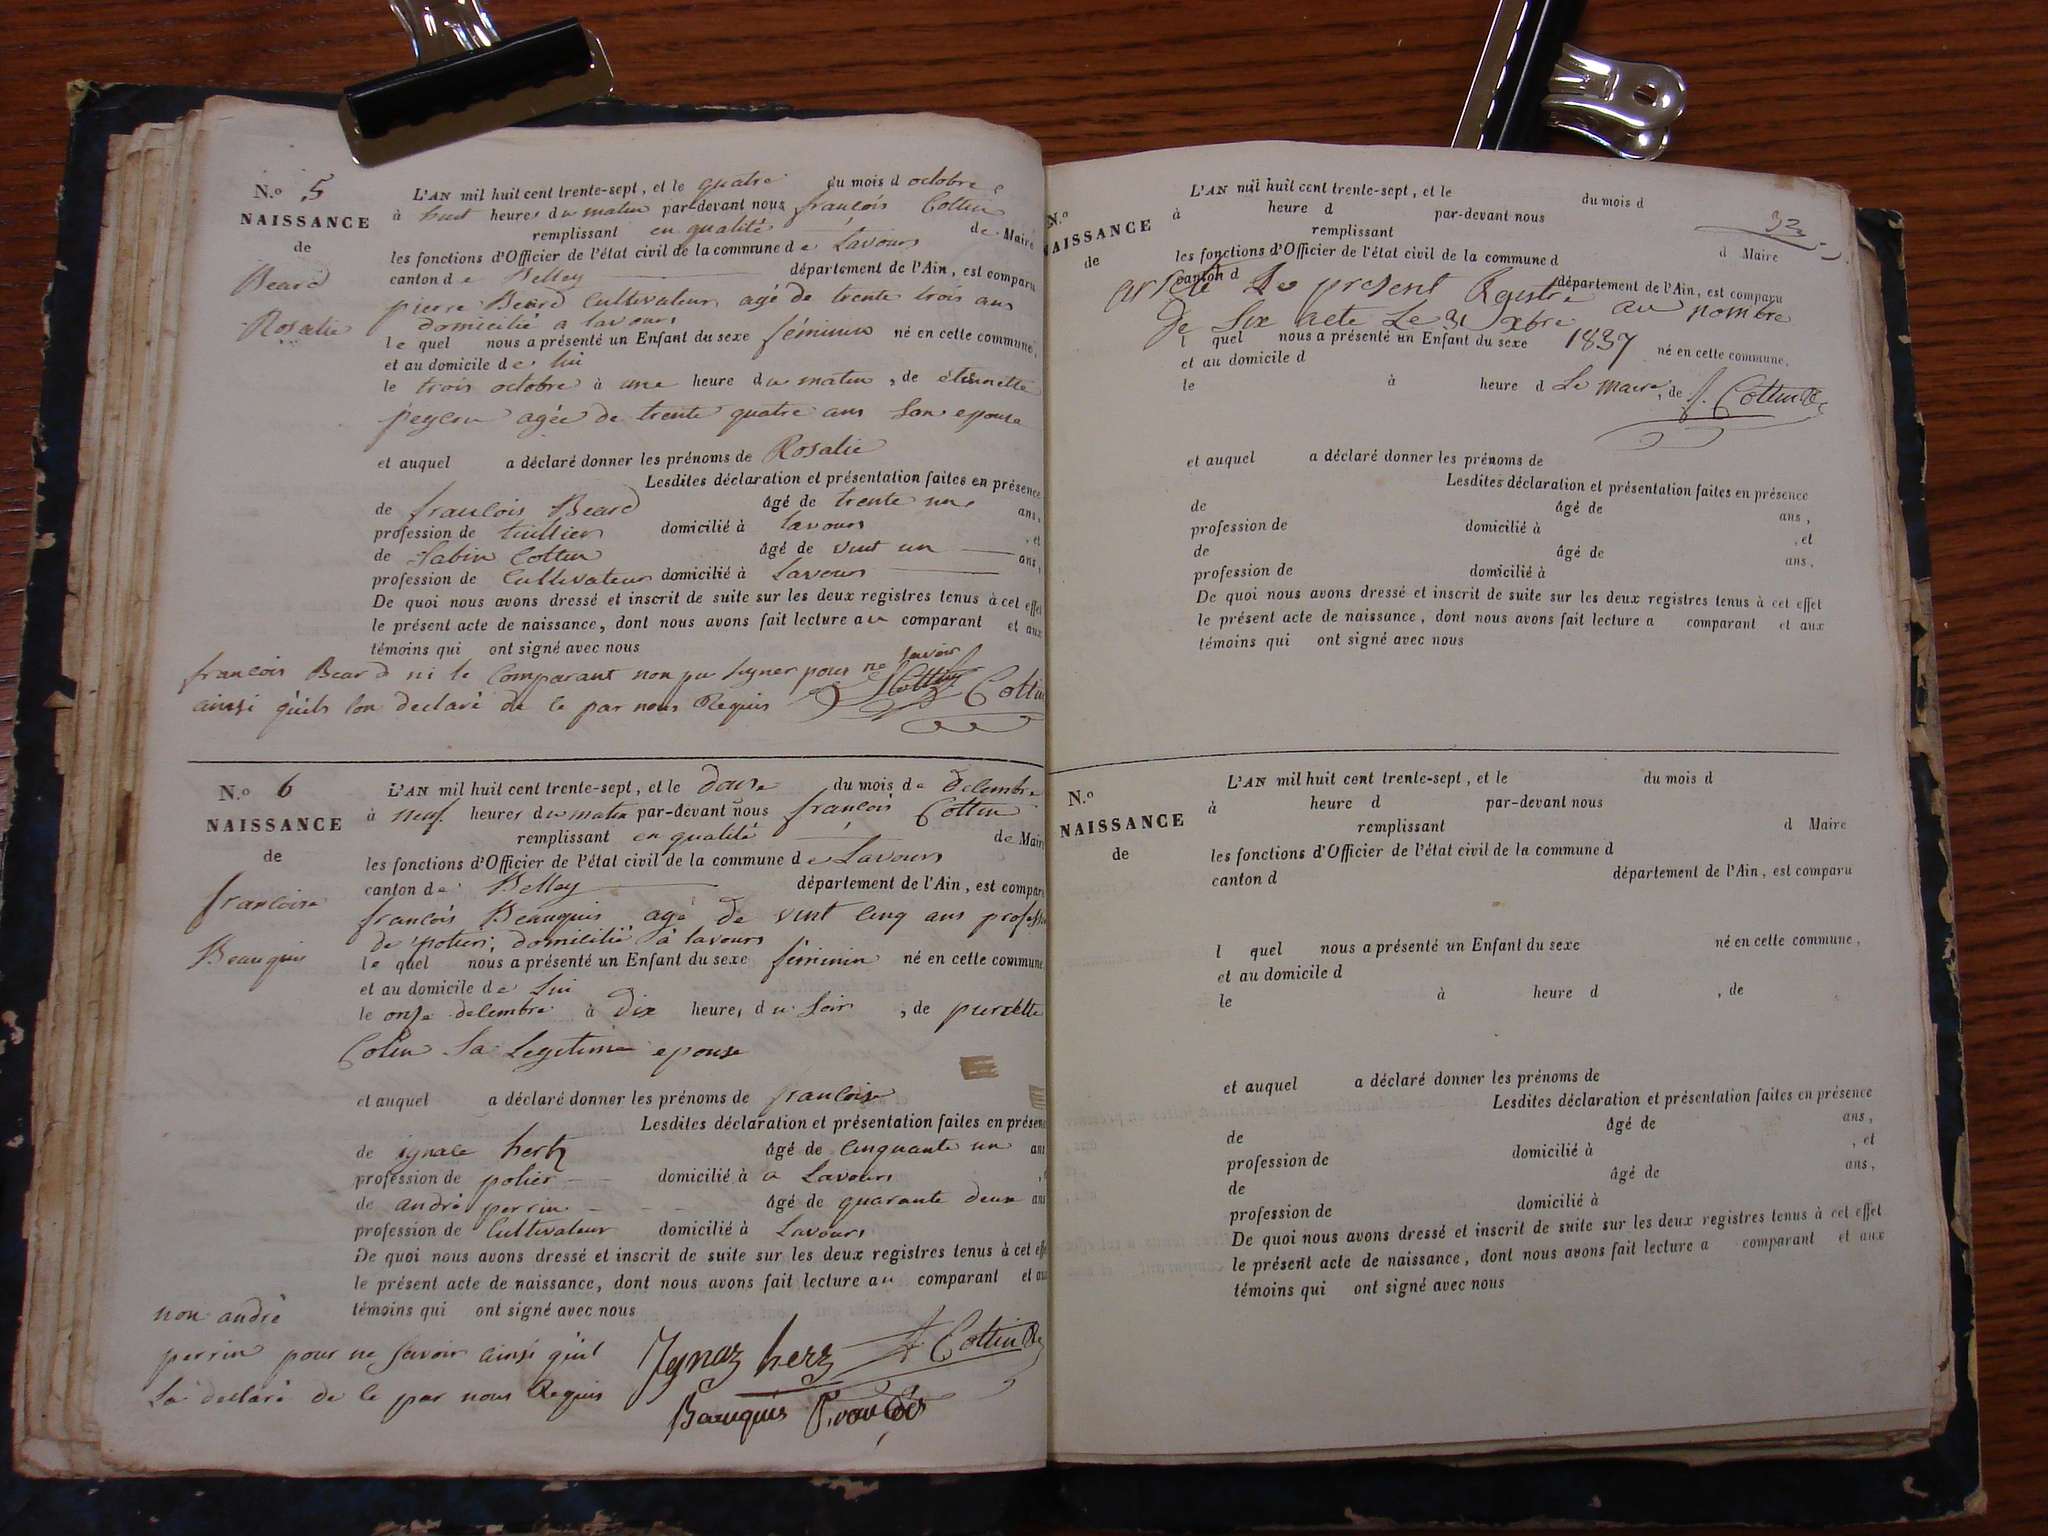 N.o 5
NAISSANCE
de
Beard
Rosalie
L'AN mil huit cent trente-sept, et le quatre du mois d octobre
à huit heures du matin par-devant nous françois Cottin
remplissant en qualité de Maire
les fonctions d'Officier de l'état civil de la commune de Lavours
canton de Belley département de l'Ain, est comparu
pierre Beard Cultivateur agé de trente trois ans
domicilié a lavours
le quel nous a présenté un Enfant du sexe féminin né en cette commune,
et au domicile de lui
le trois octobre à une heure du matin, de étiennette
peycru agée de trente quatre ans son epouse
et auquel a déclaré donner les prénoms de Rosalie
Lesdites déclaration et présentation faites en présence
de francois Beard âgé de trente un ans,
profession de tuillier domicilié à lavours, et
de Sabin Cottin âgé de vint un ans,
profession de Cultivateur domicilié à Lavours
De quoi nous avons dressé et inscrit de suite sur les deux registres tenus à cet effet
le présent acte de naissance, dont nous avons fait lecture au comparant et aux
témoins qui ont signé avec nous
francois Beard ni le Comparant non pu signer pour ne savoir
ainsi qu'ils lon declaré de ce par nous Requis Cottin
N.o 6
NAISSANCE
de
francoise
Beauquis
L'AN mil huit cent trente-sept, et le douse du mois de decembre
à neuf heures du matin par-devant nous françois Cottin
remplissant en qualité de Maire
les fonctions d'Officier de l'état civil de la commune de Lavours
canton de Belley département de l'Ain, est comparu
françois Beauquis agé de vint cinq ans professi
de potier, domicilié à lavours
le quel nous a présenté un Enfant du sexe féminin né en cette commune
et au domicile de lui
le onse decembre à dix heures du Soir, de pierrette
Colin Sa Legitime epouse
et auquel a déclaré donner les prénoms de francoise
Lesdites déclaration et présentation faites en présen
de ignace hertz âgé de Cinquante un ans
profession de potier domicilié à a Lavours
de andré perrin âgé de quarante deux ans
profession de Cultivateur domicilié à Lavours
De quoi nous avons dressé et inscrit de suite sur les deux registres tenus à cet effe
le présent acte de naissance, dont nous avons fait lecture au comparant et aux
témoins qui ont signé avec nous
non andré
perrin pour ne savoir ainsi quil
la declaré de ce par nous Requis
Ignaz herz f. Cottin
Bauquis
32
N.o
NAISSANCE
de
L'AN mil huit cent trente-sept, et le du mois d
à heure d par-devant nous
remplissant d Maire
les fonctions d'Officier de l'état civil de la commune d
canton d département de l'Ain, est comparu
arrêté Le present Registre au nombre
de Six acte Le 31 xbre 1837
l quel nous a présenté un Enfant du sexe né en cette commune.
et au domicile d
le à heure d , de
Le maire f. Cottin
et auquel a déclaré donner les prénoms de
Lesdites déclaration et présentation faites en présence
de âgé de ans,
profession de domicilié à , et
de âgé de ans,
profession de domicilié à
De quoi nous avons dressé et inscrit de suite sur les deux registres tenus à cet effet
le présent acte de naissance, dont nous avons fait lecture a comparant et aux
témoins qui ont signé avec nous
N.o
NAISSANCE
de
L'AN mil huit cent trente-sept, et le du mois d
à heure d par-devant nous
remplissant d Maire
les fonctions d'Officier de l'état civil de la commune d
canton d département de l'Ain, est comparu
l quel nous a présenté un Enfant du sexe né en cette commune,
et au domicile d
le à heure d , de
et auquel a déclaré donner les prénoms de
Lesdites déclaration et présentation faites en présence
de âgé de ans,
profession de domicilié à , et
de âgé de ans,
profession de domicilié à
De quoi nous avons dressé et inscrit de suite sur les deux registres tenus à cet effet
le présent acte de naissance, dont nous avons fait lecture a comparant et aux
témoins qui ont signé avec nous